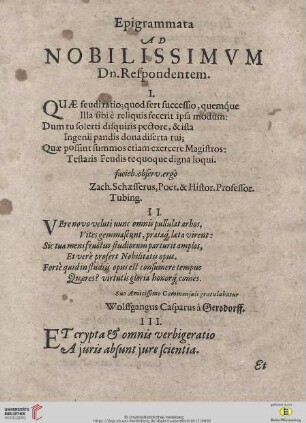 Epigrammata
AD
NOBILISSIMVM
Dn. Respondentem.
I.
QUÆ feudi ratio; quod fert successio, quemq́ue
Illa sibi è reliquis fecerit ipsa modum:
Dum tu solerti disquiris pectore, & ista
Ingenii pandis dona diserta tui;
Quæ possint summos etiam exercere Magistros:
Testaris Feudis te quoque digna loqui.
observ. ergò
Zach. Schæfferus, Poët. & Histor. Professor.
Tubing.
II.
VEre novo veluti nunc omnis pullulat arbos,
Vites gemmascunt, prataq́, læta virent:
Sic tua mens fructus studiorum parturit amplos,
Et verè profert Nobilitatis opus.
Fortè quid in studiis opus est consumere tempus
Quæres? virtutis gloria honorq́, comes.
Suo Amicissimo Commensali gratulabatur
Wolffgangus Casparus à Gersdorff.
III.
ET crypta & omnis verbigeratio
A juris absunt jure scientia.
Et